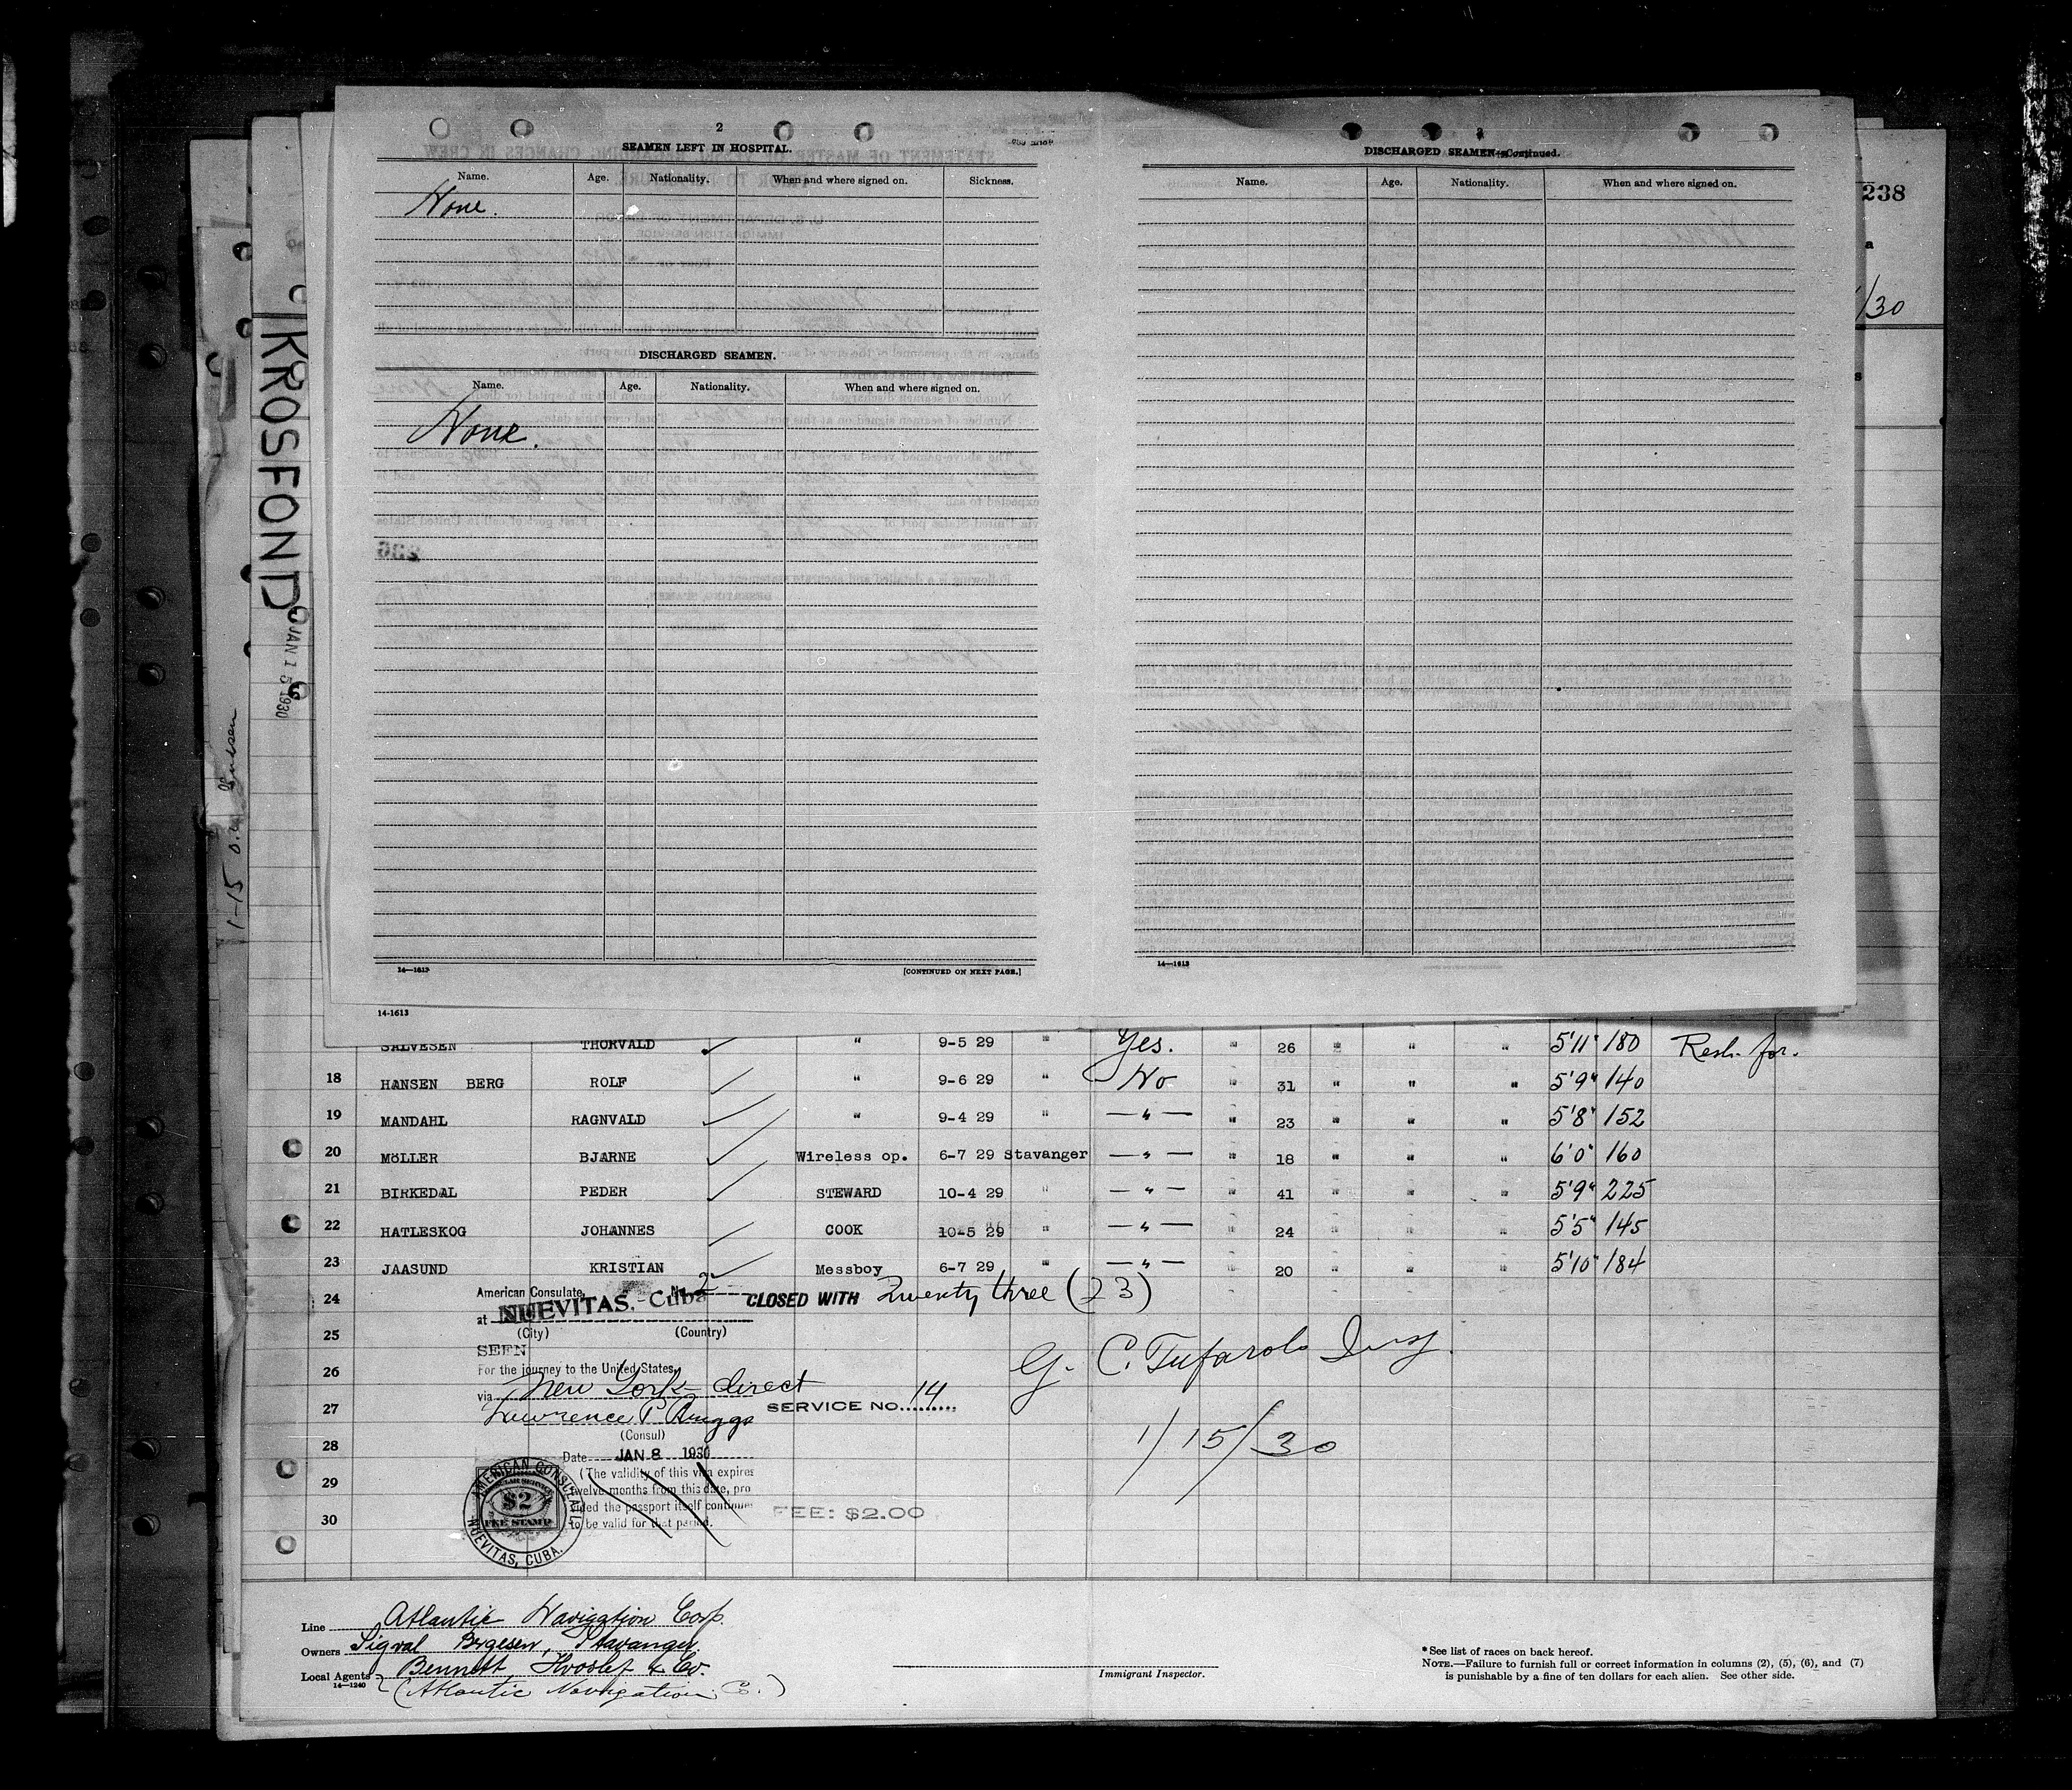 2
SEAMEN LEFT IN HOSPITAL.
Name. Age. Nationality. When and where signed on. Sickness.
None.
DISCHARGED SEAMEN.
Name. Age. Nationality. When and where signed on.
None.
14—1613 [CONTINUED ON NEXT PAGE.]
14-1613
3
DISCHARGED SEAMEN—Continued.
Name. Age. Nationality. When and where signed on.
14—1613
238
a
/30
s
KROSFOND
JAN 15 1930
1-15
SALVESEN THORVALD " 9-5 29 " Yes. " 26 " " " 5'11" 180
18 HANSEN BERG ROLF " 9-6 29 " No " 31 " " " 5'9" 140
19 MANDAHL RAGNVALD " 9-4 29 " — " — " 23 " " " 5'8" 152
20 MÖLLER BJARNE Wireless op. 6-7 29 Stavanger — " — " 18 " " " 6'0" 160
21 BIRKEDAL PEDER STEWARD 10-4 29 " — " — " 41 " " " 5'9" 225
22 HATLESKOG JOHANNES COOK 10-5 29 " — " — " 24 " " " 5'5" 145
23 JAASUND KRISTIAN Messboy 6-7 29 " — " — " 20 " " " 5'10" 184
24
25
26
27
28
29
30
American Consulate, No. 2
at NUEVITAS. Cuba
(City) (Country)
CLOSED WITH Twenty three (23)
SEEN
For the journey to the United States,
via New York direct
Lawrence P. Briggs
(Consul)
SERVICE NO. 14
Date JAN 8 1930
(The validity of this visa expires
twelve months from this date, pro
vided the passport itself continues
to be valid for that period.
FEE: $2.00
AMERICAN CONSULATE
NUEVITAS, CUBA.
$2
FEE STAMP
G. C. Tufarolo Insp.
1/15/30
Line Atlantic Navigation Corp.
Owners Sigval Bergesen, Stavanger.
Local Agents Bennett, Hvoslef & Co.
14—1240 (Atlantic Navigation C.)
Immigrant Inspector.
*See list of races on back hereof.
NOTE.—Failure to furnish full or correct information in columns (2), (5), (6), and (7)
is punishable by a fine of ten dollars for each alien. See other side.